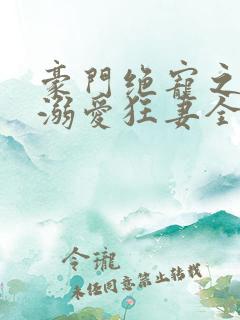 豪門絕寵之
溺愛狂妻全
令瓏
未经同意禁止转载